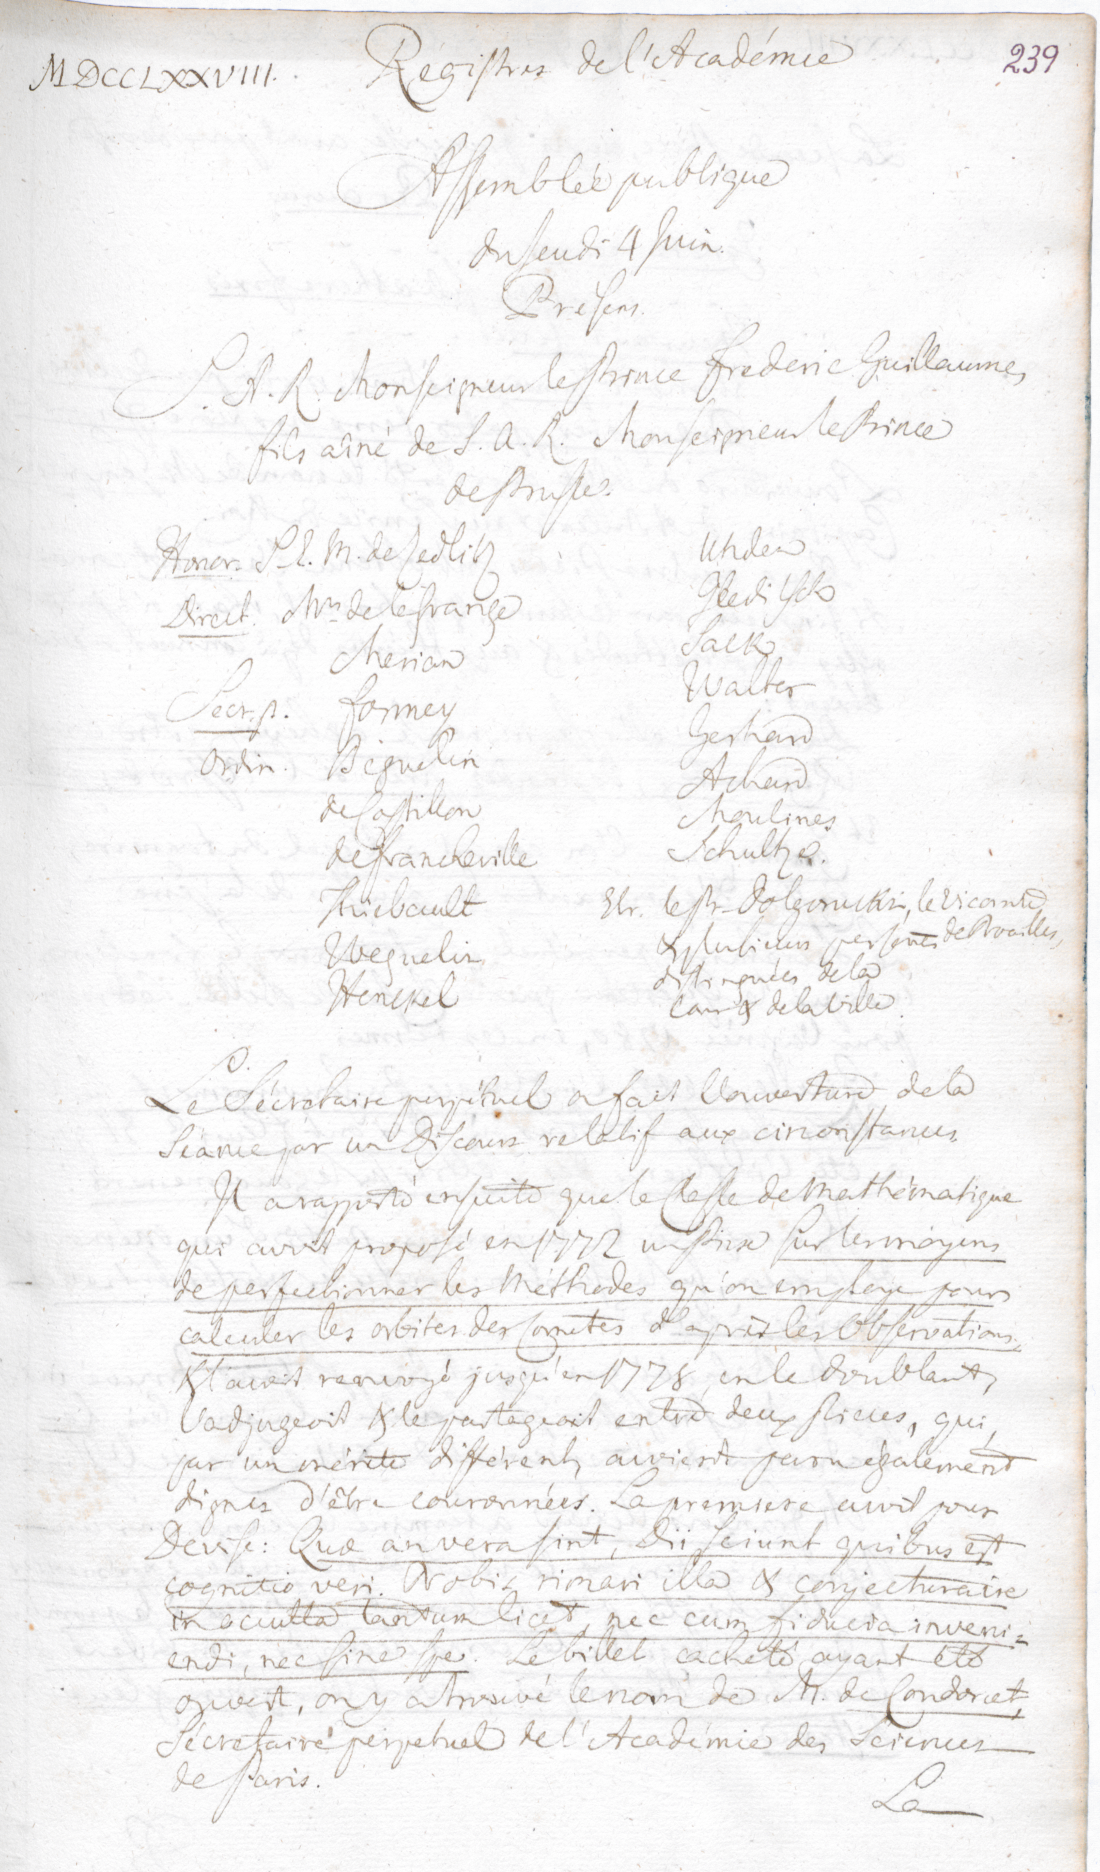 MDCCLXXVIII.
Régistres de l'Académie
239
Assemblée publique
du Jeudi 4 Juin.
Présens.
S. A. R. Monseigneur le Prince Frederic Guillaume,
fils aîné de S. A. R. Monseigneur le Prince
de Prusse.
Honor. S. E. M. de Zedlitz
Direct. Mrs de la Grange
Merian
Secr. p. Formey
Ordin. Beguelin
de Castillon
de Francheville
Thiebault
Weguelin
Henckel
Uhden
Gleditsch
Sack
Walter
Gerhard
Achard
Moulines
Schultze.
Etr. le Pr. Dolgorucki, le Vicomte
de Noailles,
& plusieurs personnes
distinguées de la
Cour & de la Ville.
Le Sécretaire perpétuel a fait l'ouverture de la
Séance par un Discours relatif aux circonstances.
Il a rapporté ensuite que la Classe de Mathématique
qui avoit proposé en 1772 un Prix sur les moyens
de perfectionner les Méthodes qu'on employe pour
calculer les orbites des Cometes d'après les Observations,
& l'avoit renvoyé jusqu'en 1778, en le doublant,
l'adjugeoit & le partageoit entre deux Pieces, qui,
par un mérite différent, avoient paru également
dignes d'être couronnées. La premiere avoit pour
Devise: Quæ an vera sint, Dii sciunt quibus est
cognitio veri. Nobis rimari illa & conjectura ire
in occulta tantum licet, nec cum fiducia inveni=
endi, nec sine spe. Le billet cacheté ayant été
ouvert, on y a trouvé le nom de M. de Condorcet,
Sécretaire perpetuel de l'Académie des Sciences
de Paris.
La